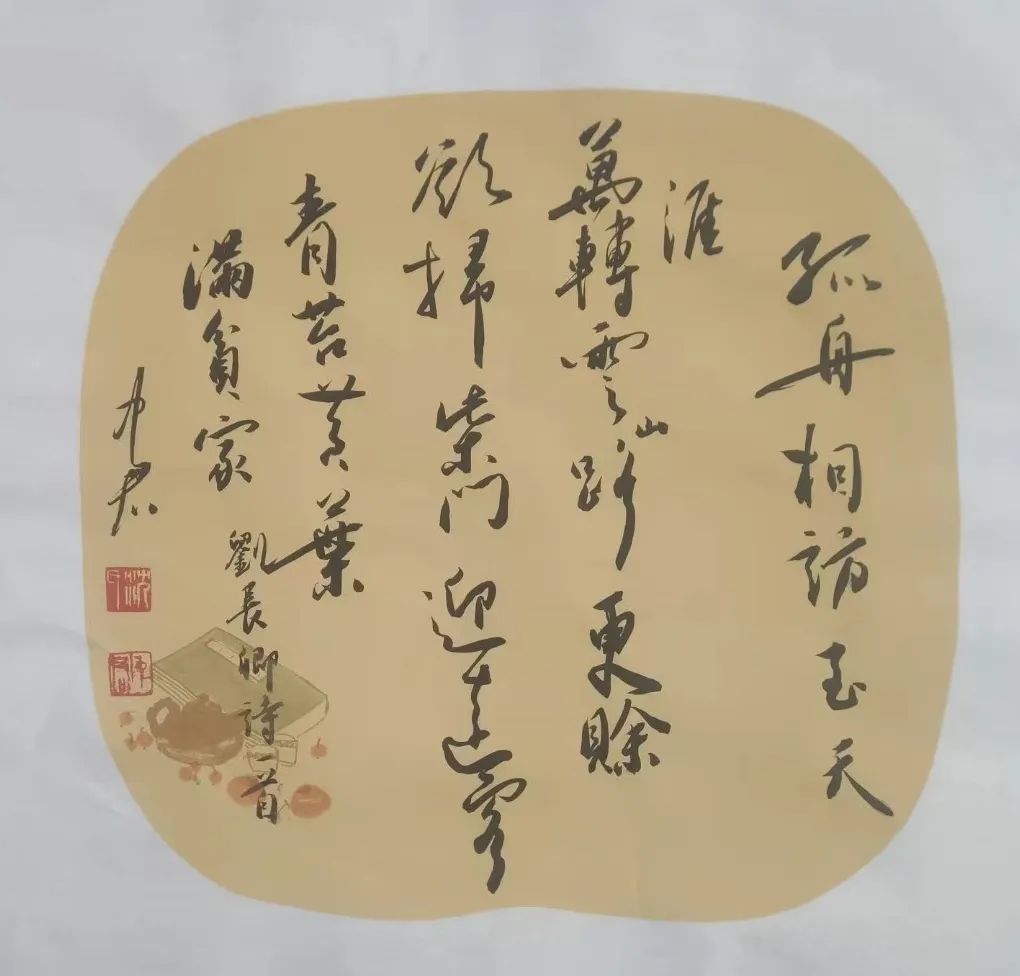 孤舟相訪至天
涯
萬轉雲山路更賒
欲掃柴門迎遠客
青苔黃葉
滿貧家
劉長卿詩一首